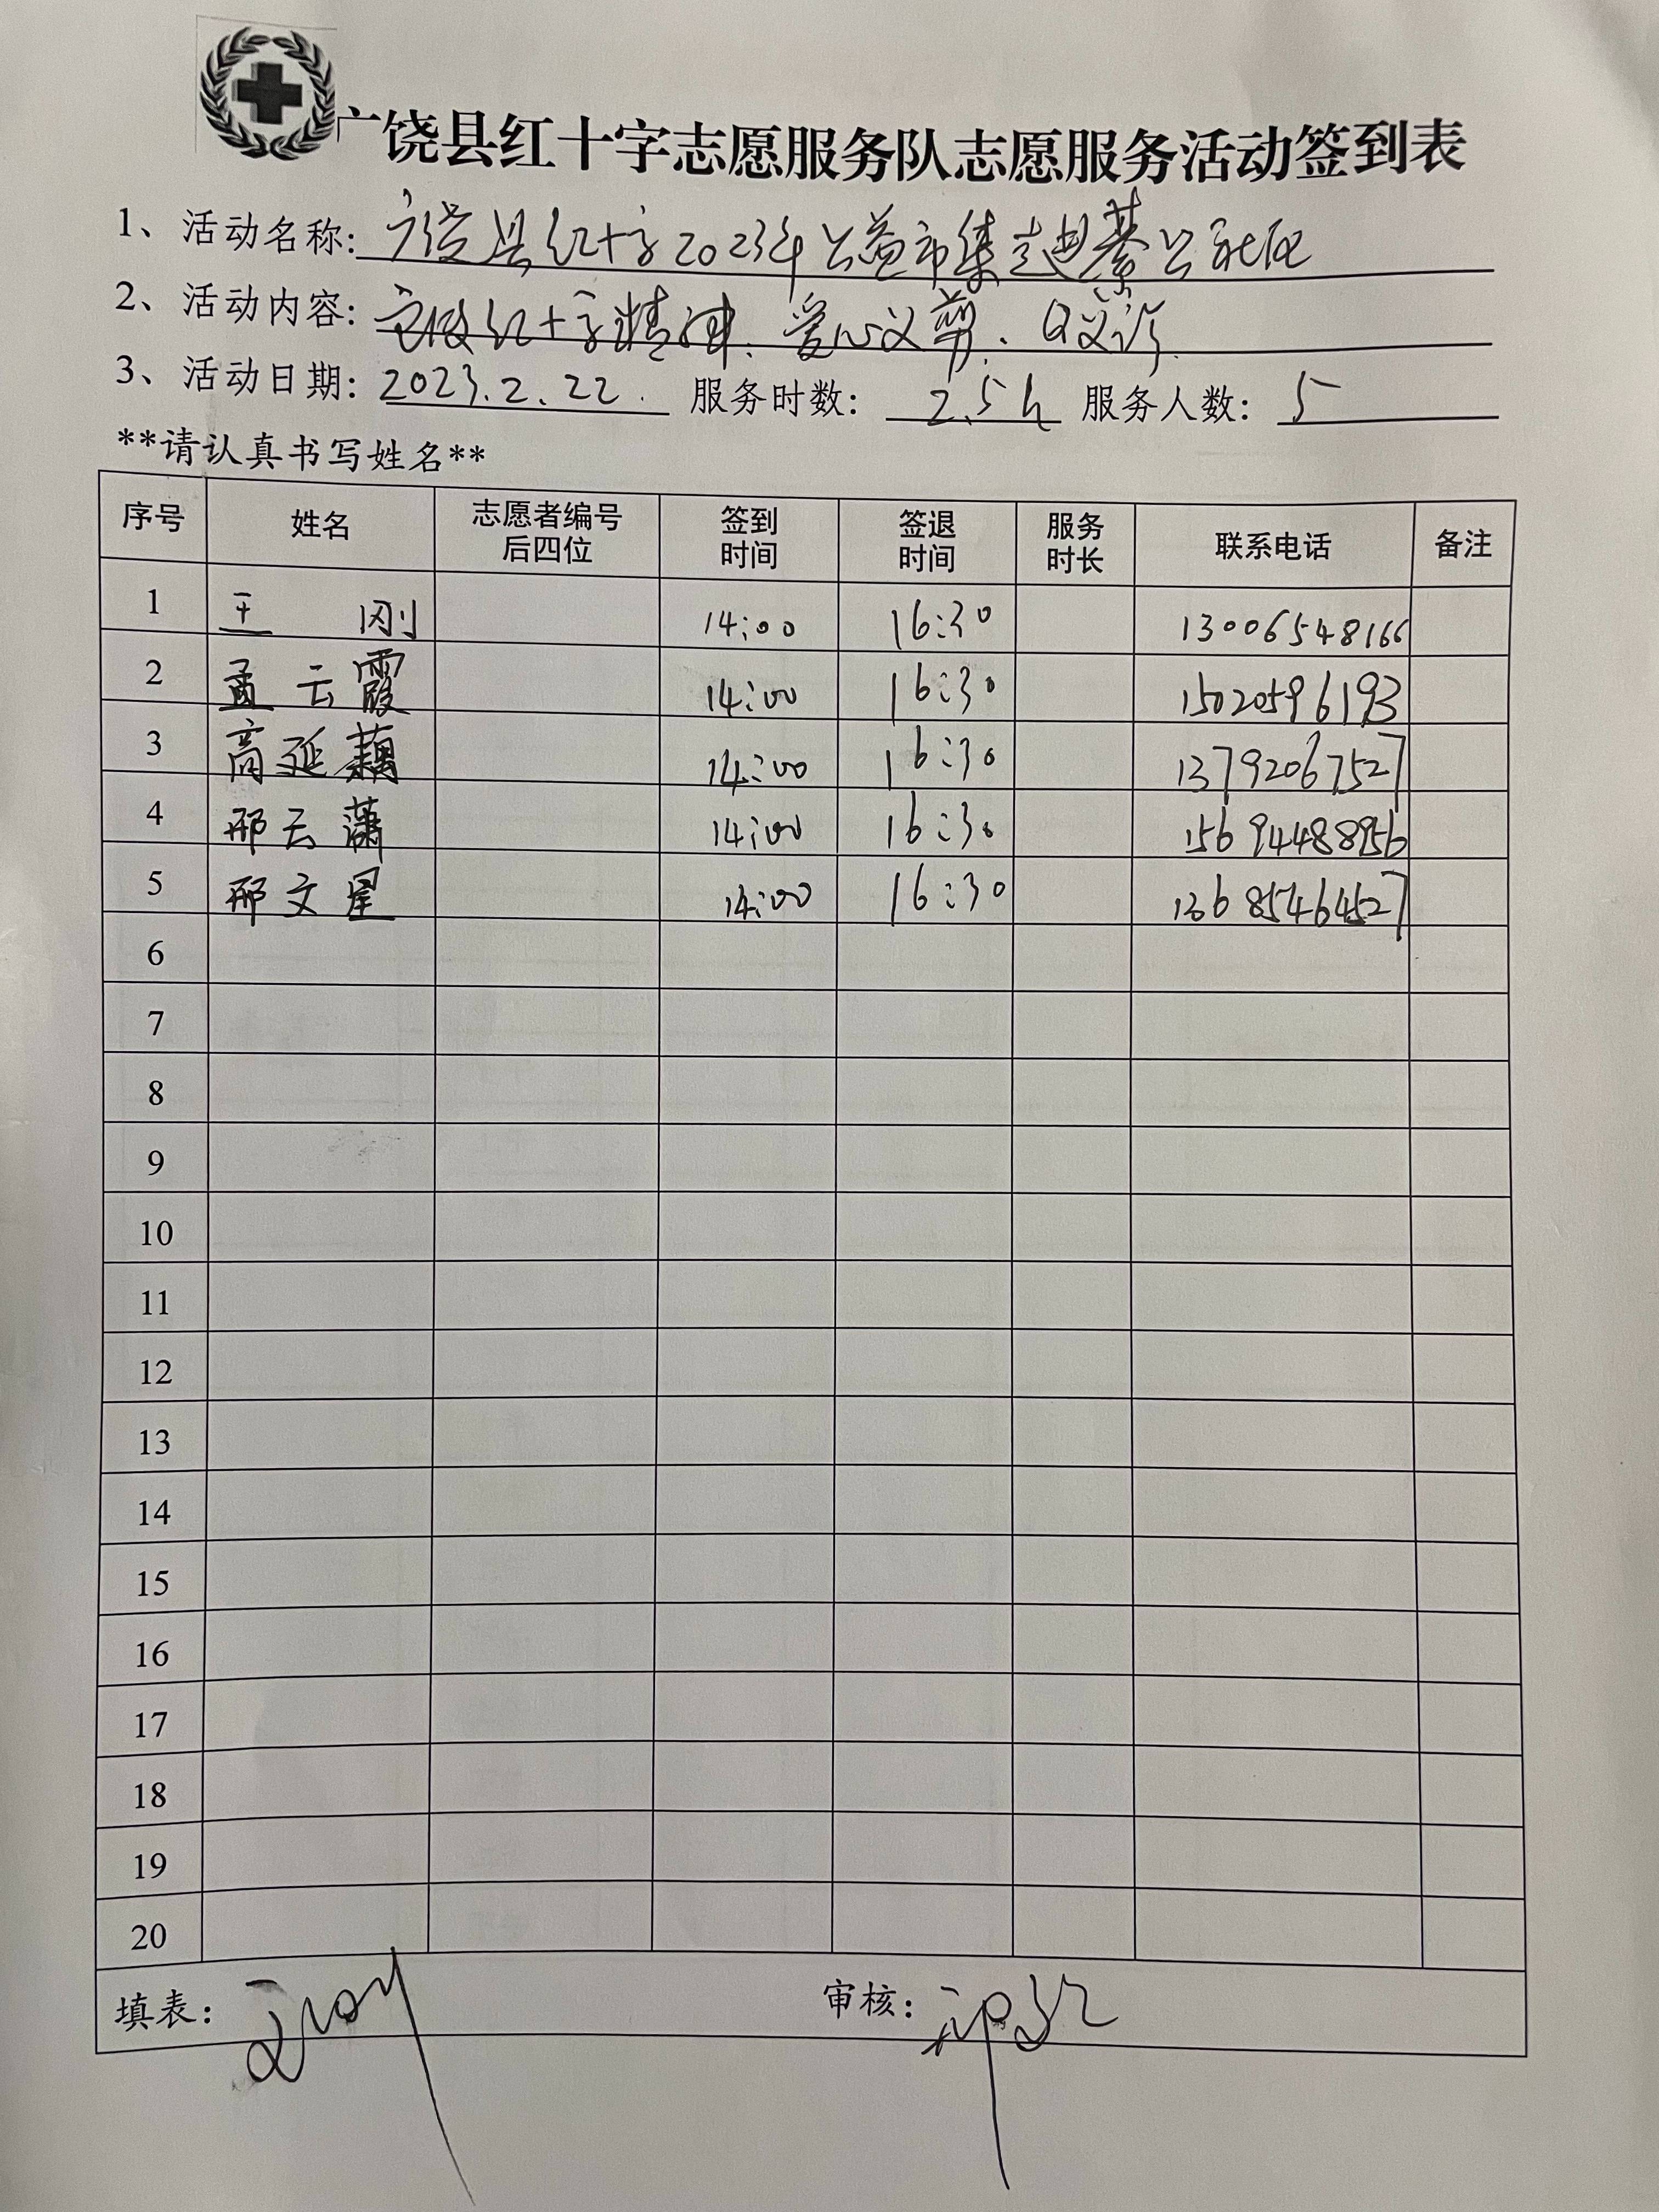 广饶县红十字志愿服务队志愿服务活动签到表
1、活动名称: 广饶县红十字2023年公益市集走进綦公社区
2、活动内容: 宣传红十字精神、爱心义剪、义诊
3、活动日期: 2023.2.22. 服务时数: 2.5h 服务人数: 5
**请认真书写姓名**
序号 姓名 志愿者编号后四位 签到时间 签退时间 服务时长 联系电话 备注
1 王刚 14:00 16:30 13006548166
2 孟云霞 14:00 16:30 15020596193
3 高延藕 14:00 16:30 13792067527
4 邢云潇 14:00 16:30 15694488956
5 邢文星 14:00 16:30 13685464527
6
7
8
9
10
11
12
13
14
15
16
17
18
19
20
填表: 审核: